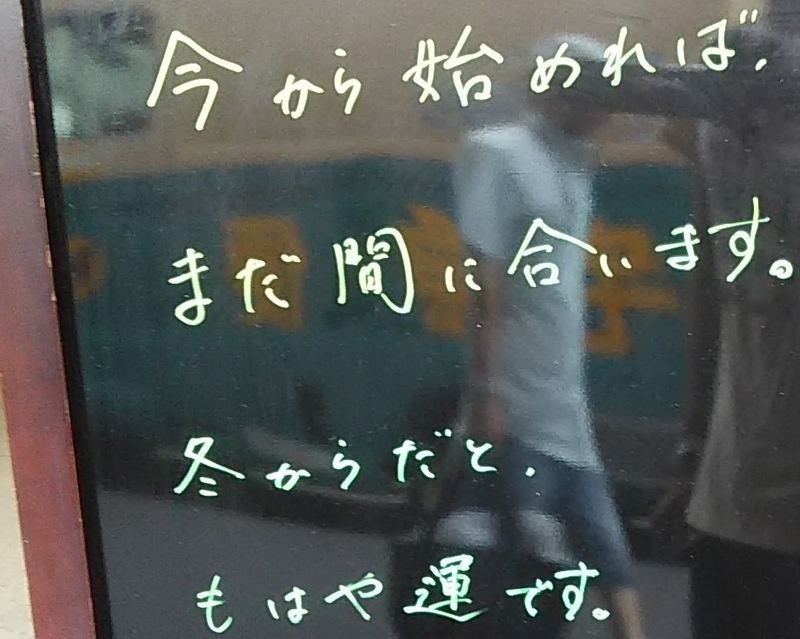 今から始めれば、
まだ間に合います。
冬からだと、
もはや運です。